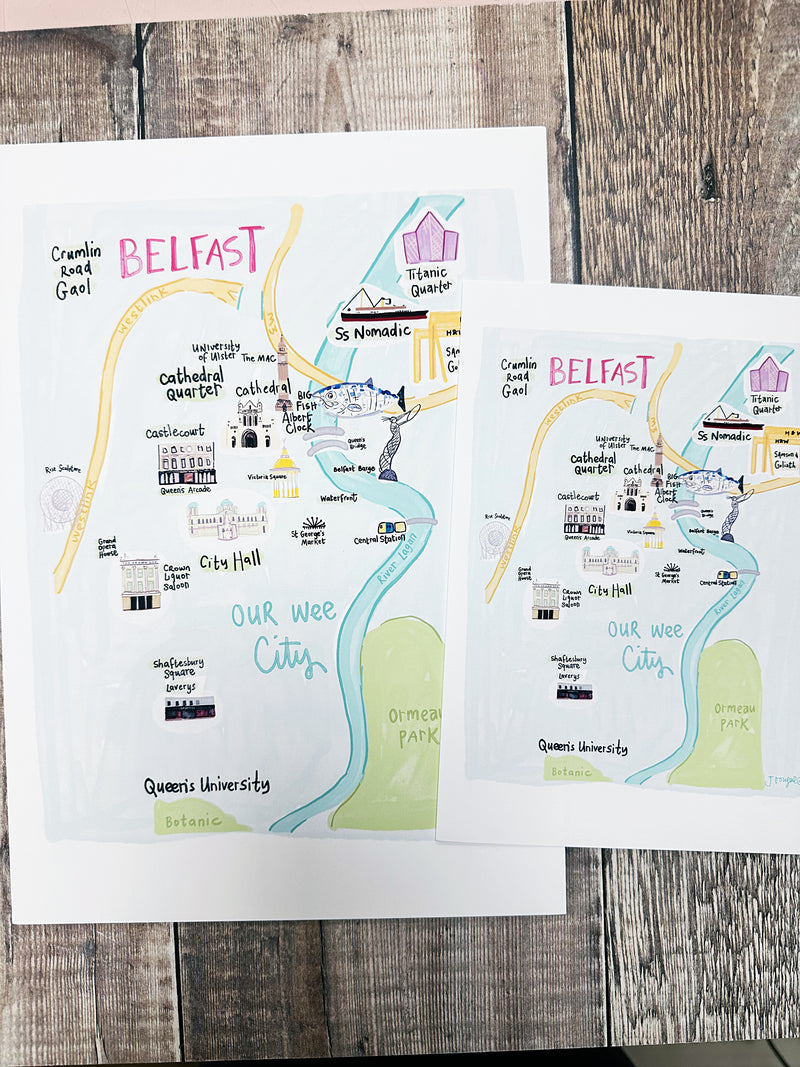 Crumlin
Road
Gaol
BELFAST
Westlink
M3
Titanic
Quarter
Ss Nomadic
H&W
University
of Ulster
The MAC
Cathedral
Quarter
Cathedral
BIG
Fish
Albert
Clock
Castlecourt
Queen's Arcade
Queen's
Bridge
Victoria Square
Belfast Barge
Rise Sculpture
Westlink
Waterfront
City Hall
St George's
Market
Central Station
River Lagan
Grand
Opera
House
Crown
Liquor
Saloon
OUR WEE
City
Shaftesbury
Square
Laverys
Ormeau
PARK
Queen's University
Botanic
Crumlin
Road
Gaol
BELFAST
Westlink
M3
Titanic
Quarter
Ss Nomadic
H&W
H&W
Samson &
Goliath
University
of Ulster
The MAC
Cathedral
Quarter
Cathedral
BIG
Fish
Albert
Clock
Castlecourt
Queen's Arcade
Queen's
Bridge
Victoria Square
Belfast Barge
Rise Sculpture
Westlink
Waterfront
City Hall
St George's
Market
Central Station
River Lagan
Grand
Opera
House
Crown
Liquor
Saloon
OUR WEE
City
Shaftesbury
Square
Laverys
Ormeau
PARK
Queen's University
Botanic